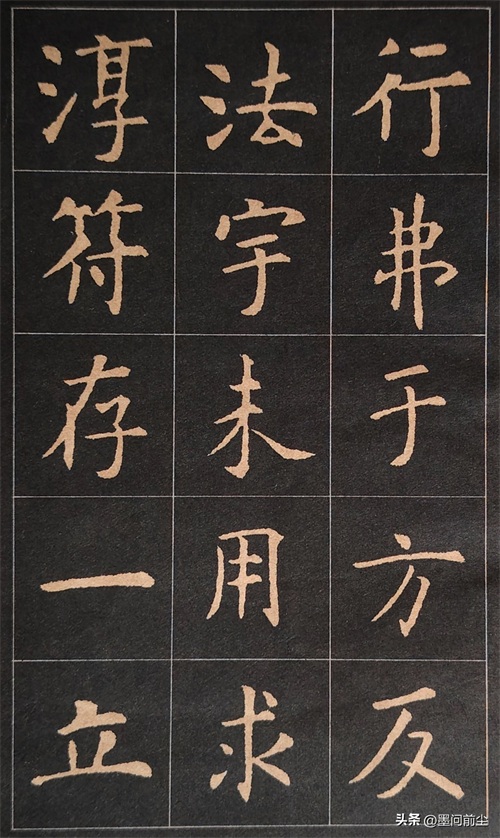 行弗于方反
法宇未用求
淳符存一立
头条 @墨问前尘